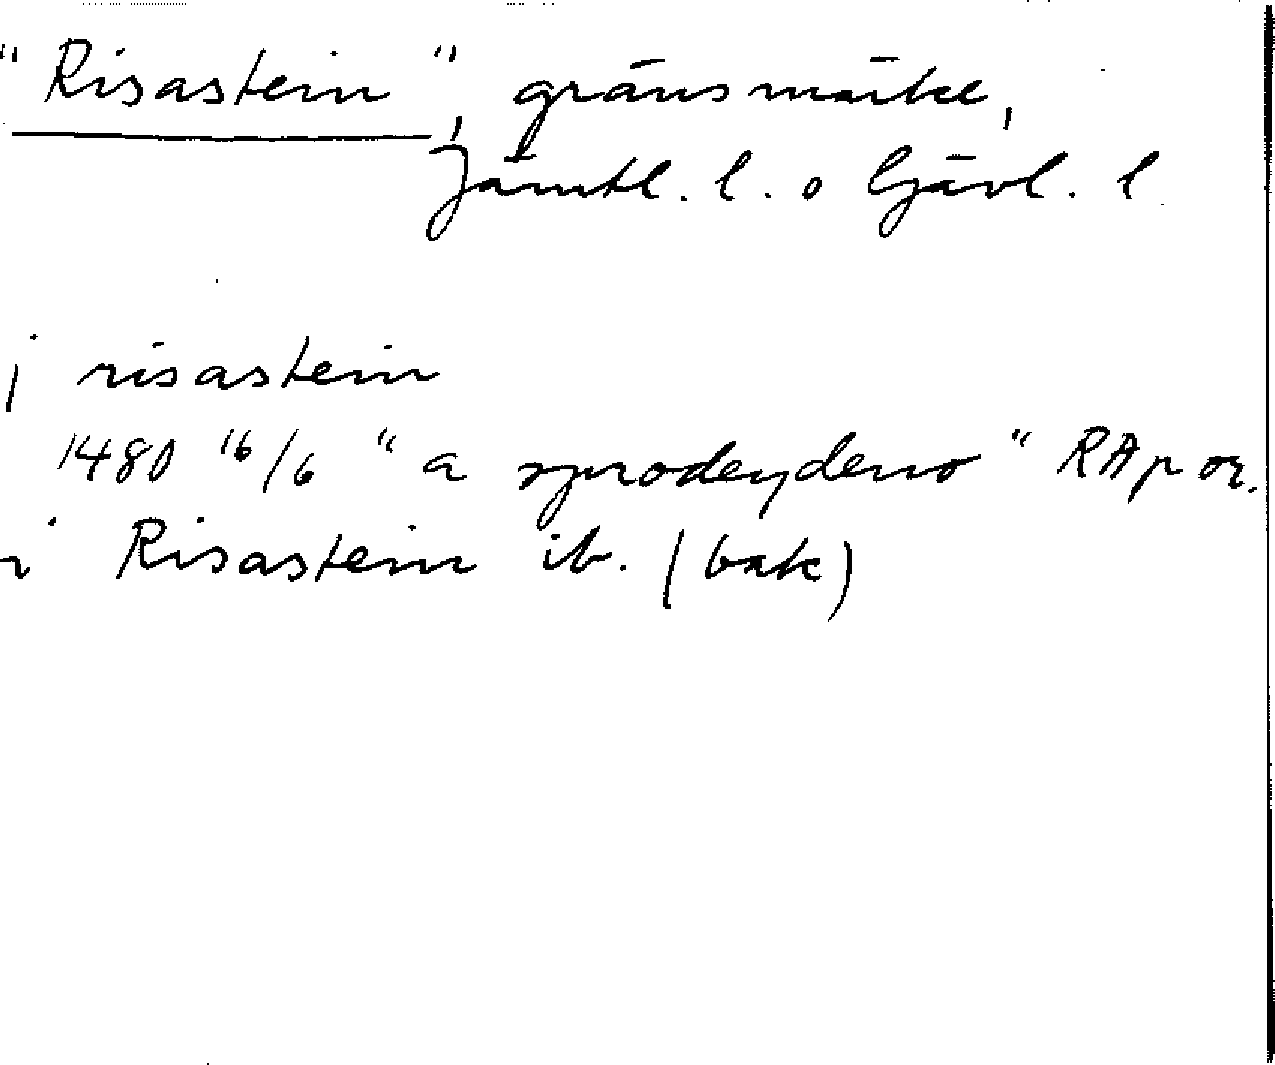 "Risastein", gränsmärke,
Jämtl. l. o Gävl. l
j risastein
1480 16/6 "a synodeydeno" RAp or.
i Risastein ib. (bak)